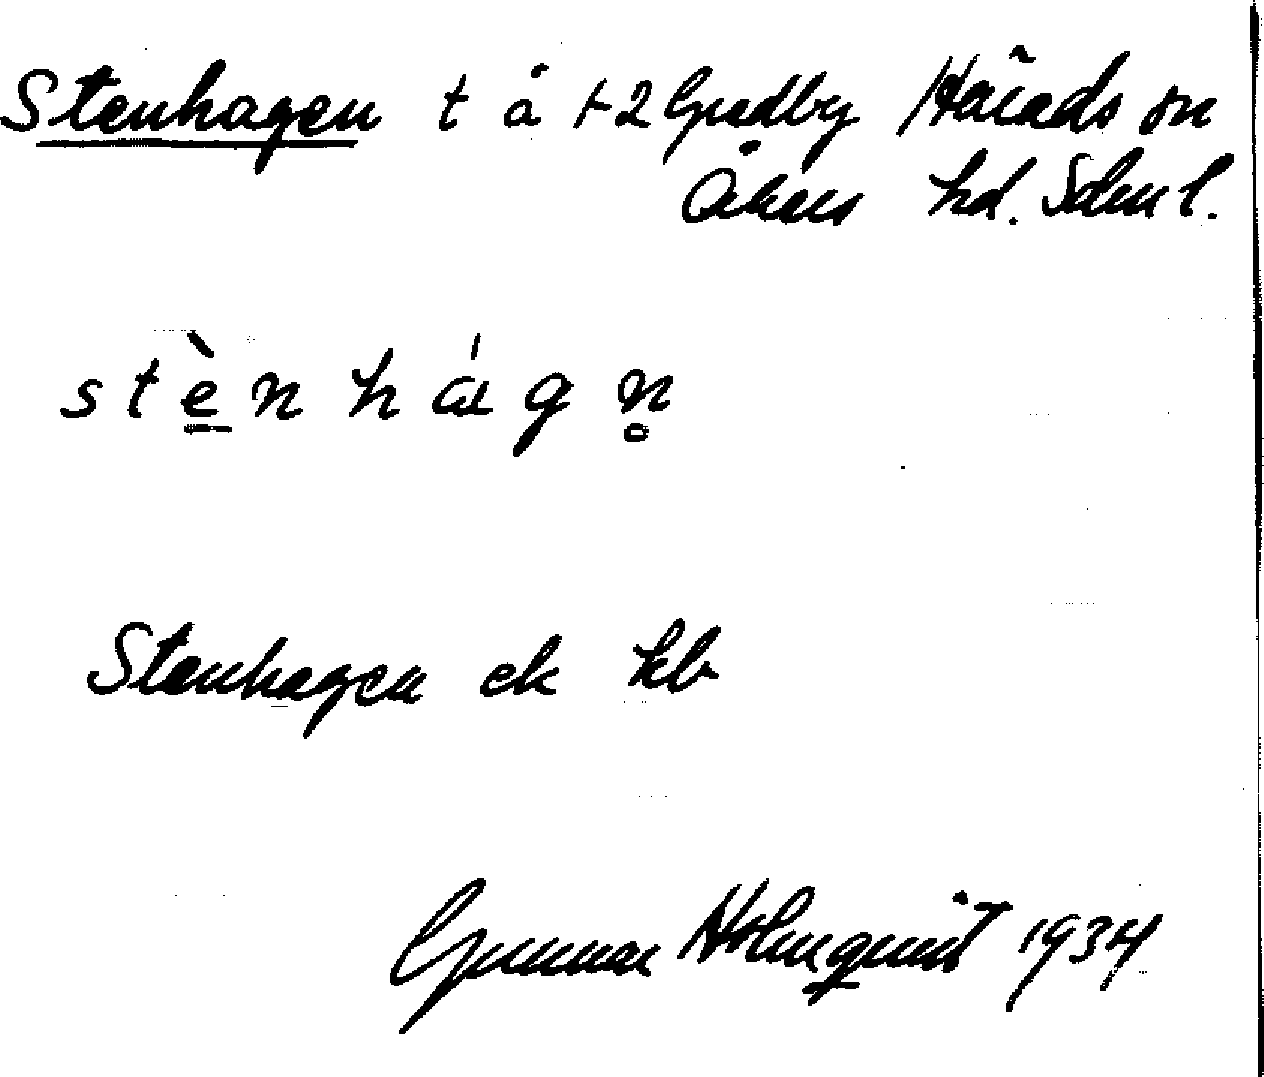 Stenhagen t å 1-2 Gredby Härads sn
Åkers hd. Södm l.
stèn hágn̥
Stenhagen ek kb
Gunnar Holmquist 1934